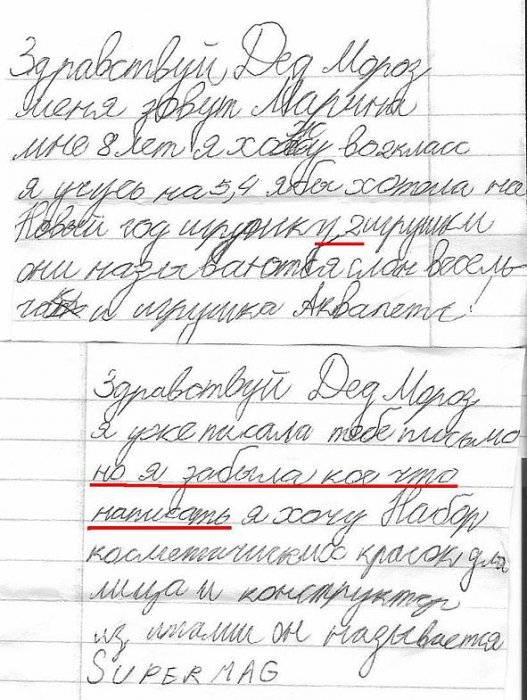 Здравствуй Дед Мороз
меня зовут Марина
мне 8 лет я хожу во 2 класс
я учусь на 5,4 я бы хотела на
Новый год игрушку, 2 игрушки
они называются слон весель-
чак и игрушка Аквапеты!
Здравствуй Дед Мороз
я уже писала тебе письмо
но я забыла кое что
написать я хочу Набор
косметических красок для
лица и конструктор
из италии он называется
SUPERMAG